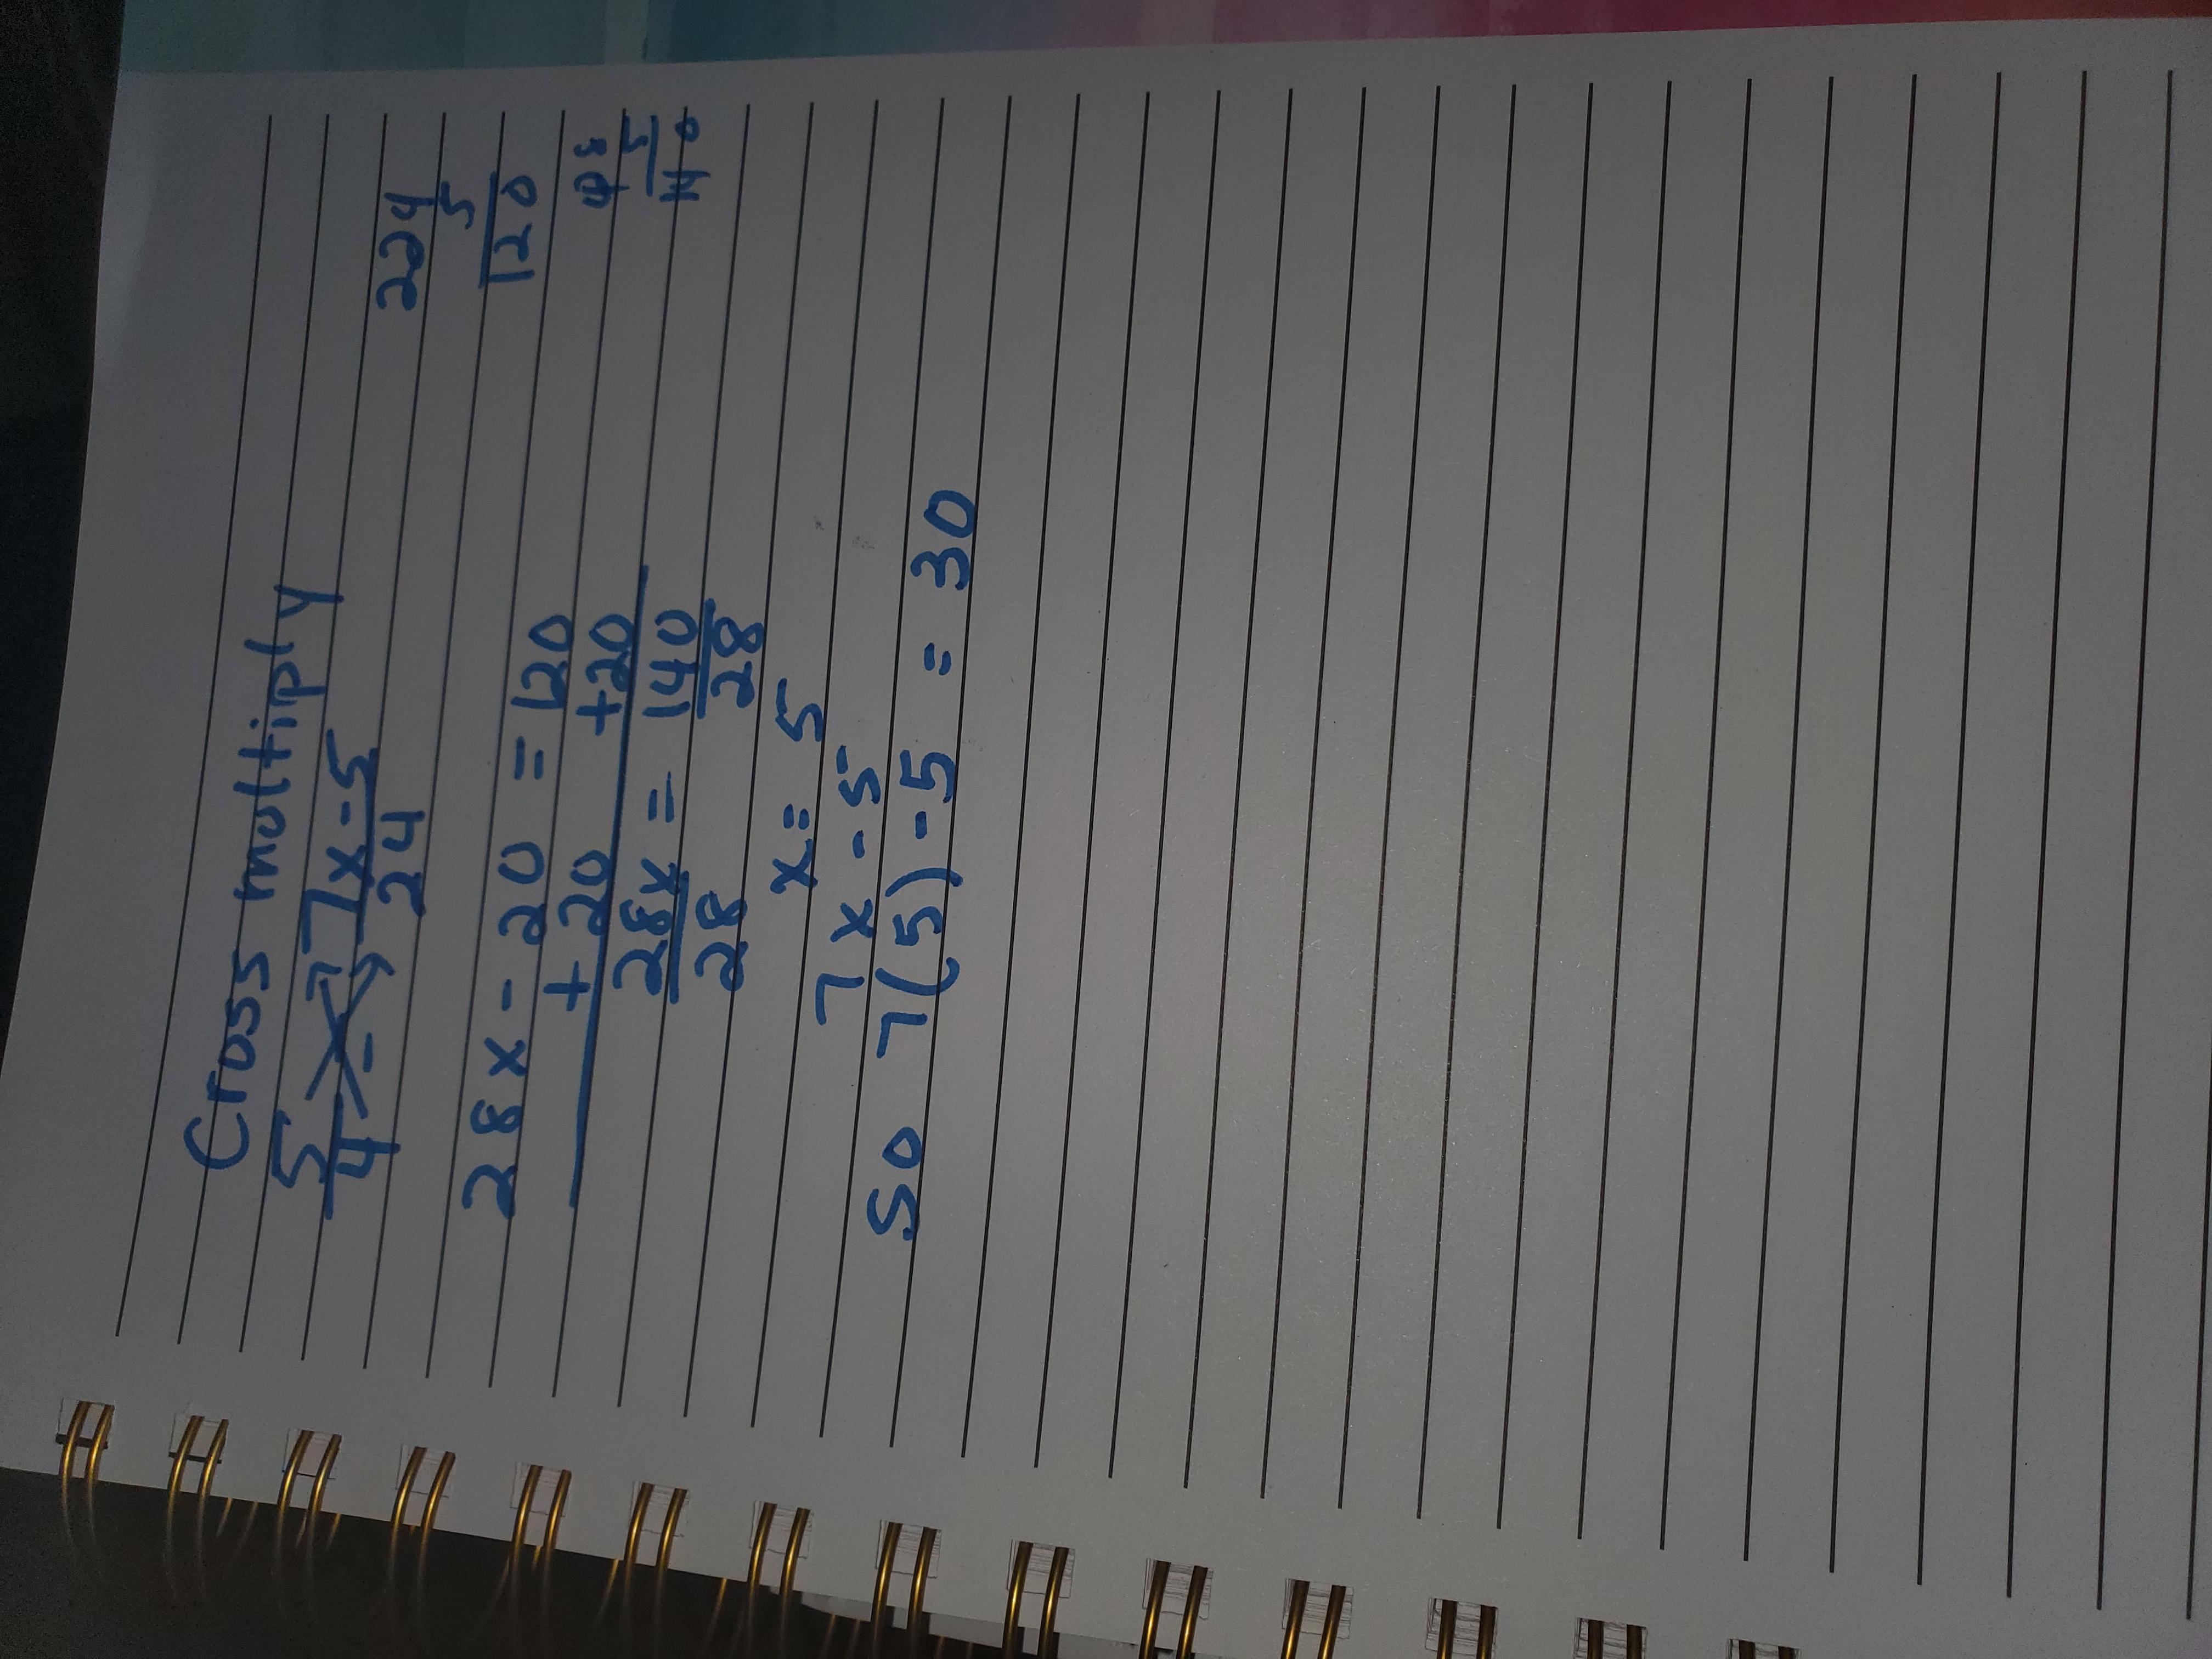 Cross multiply
5 7x-5
4 = 24
28x - 20 = 120
+ 20 +20
28x = 140
28 28
x = 5
7x - 5
so 7(5) - 5 = 30
224
5
120
5
140